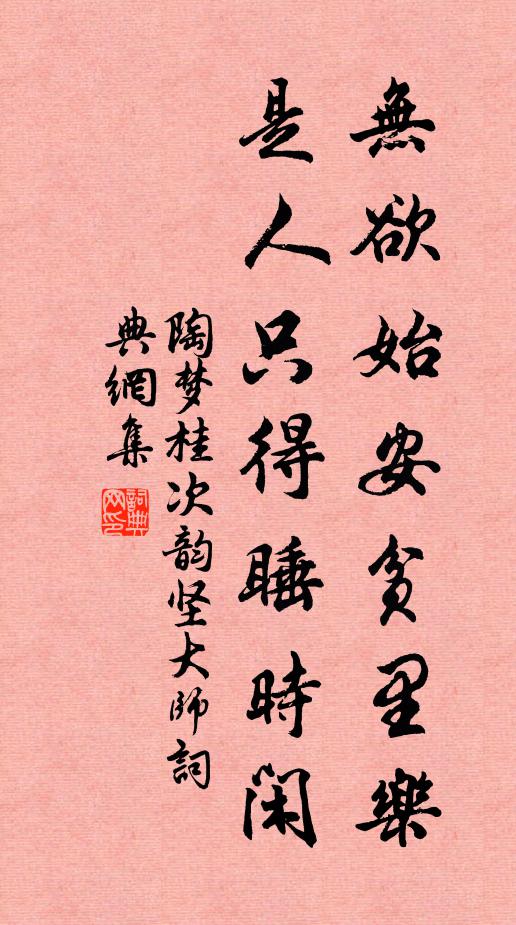 無欲始安貧里樂
是人只得睡時闲
陶梦桂次韵坚大师詞
典網集
詞典网印